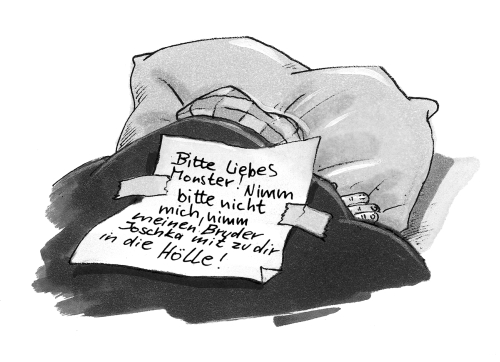 Bitte Liebes
Monster! Nimm
bitte nicht
mich, nimm
meinen Bruder
Joschka mit zu dir
in die Hölle!